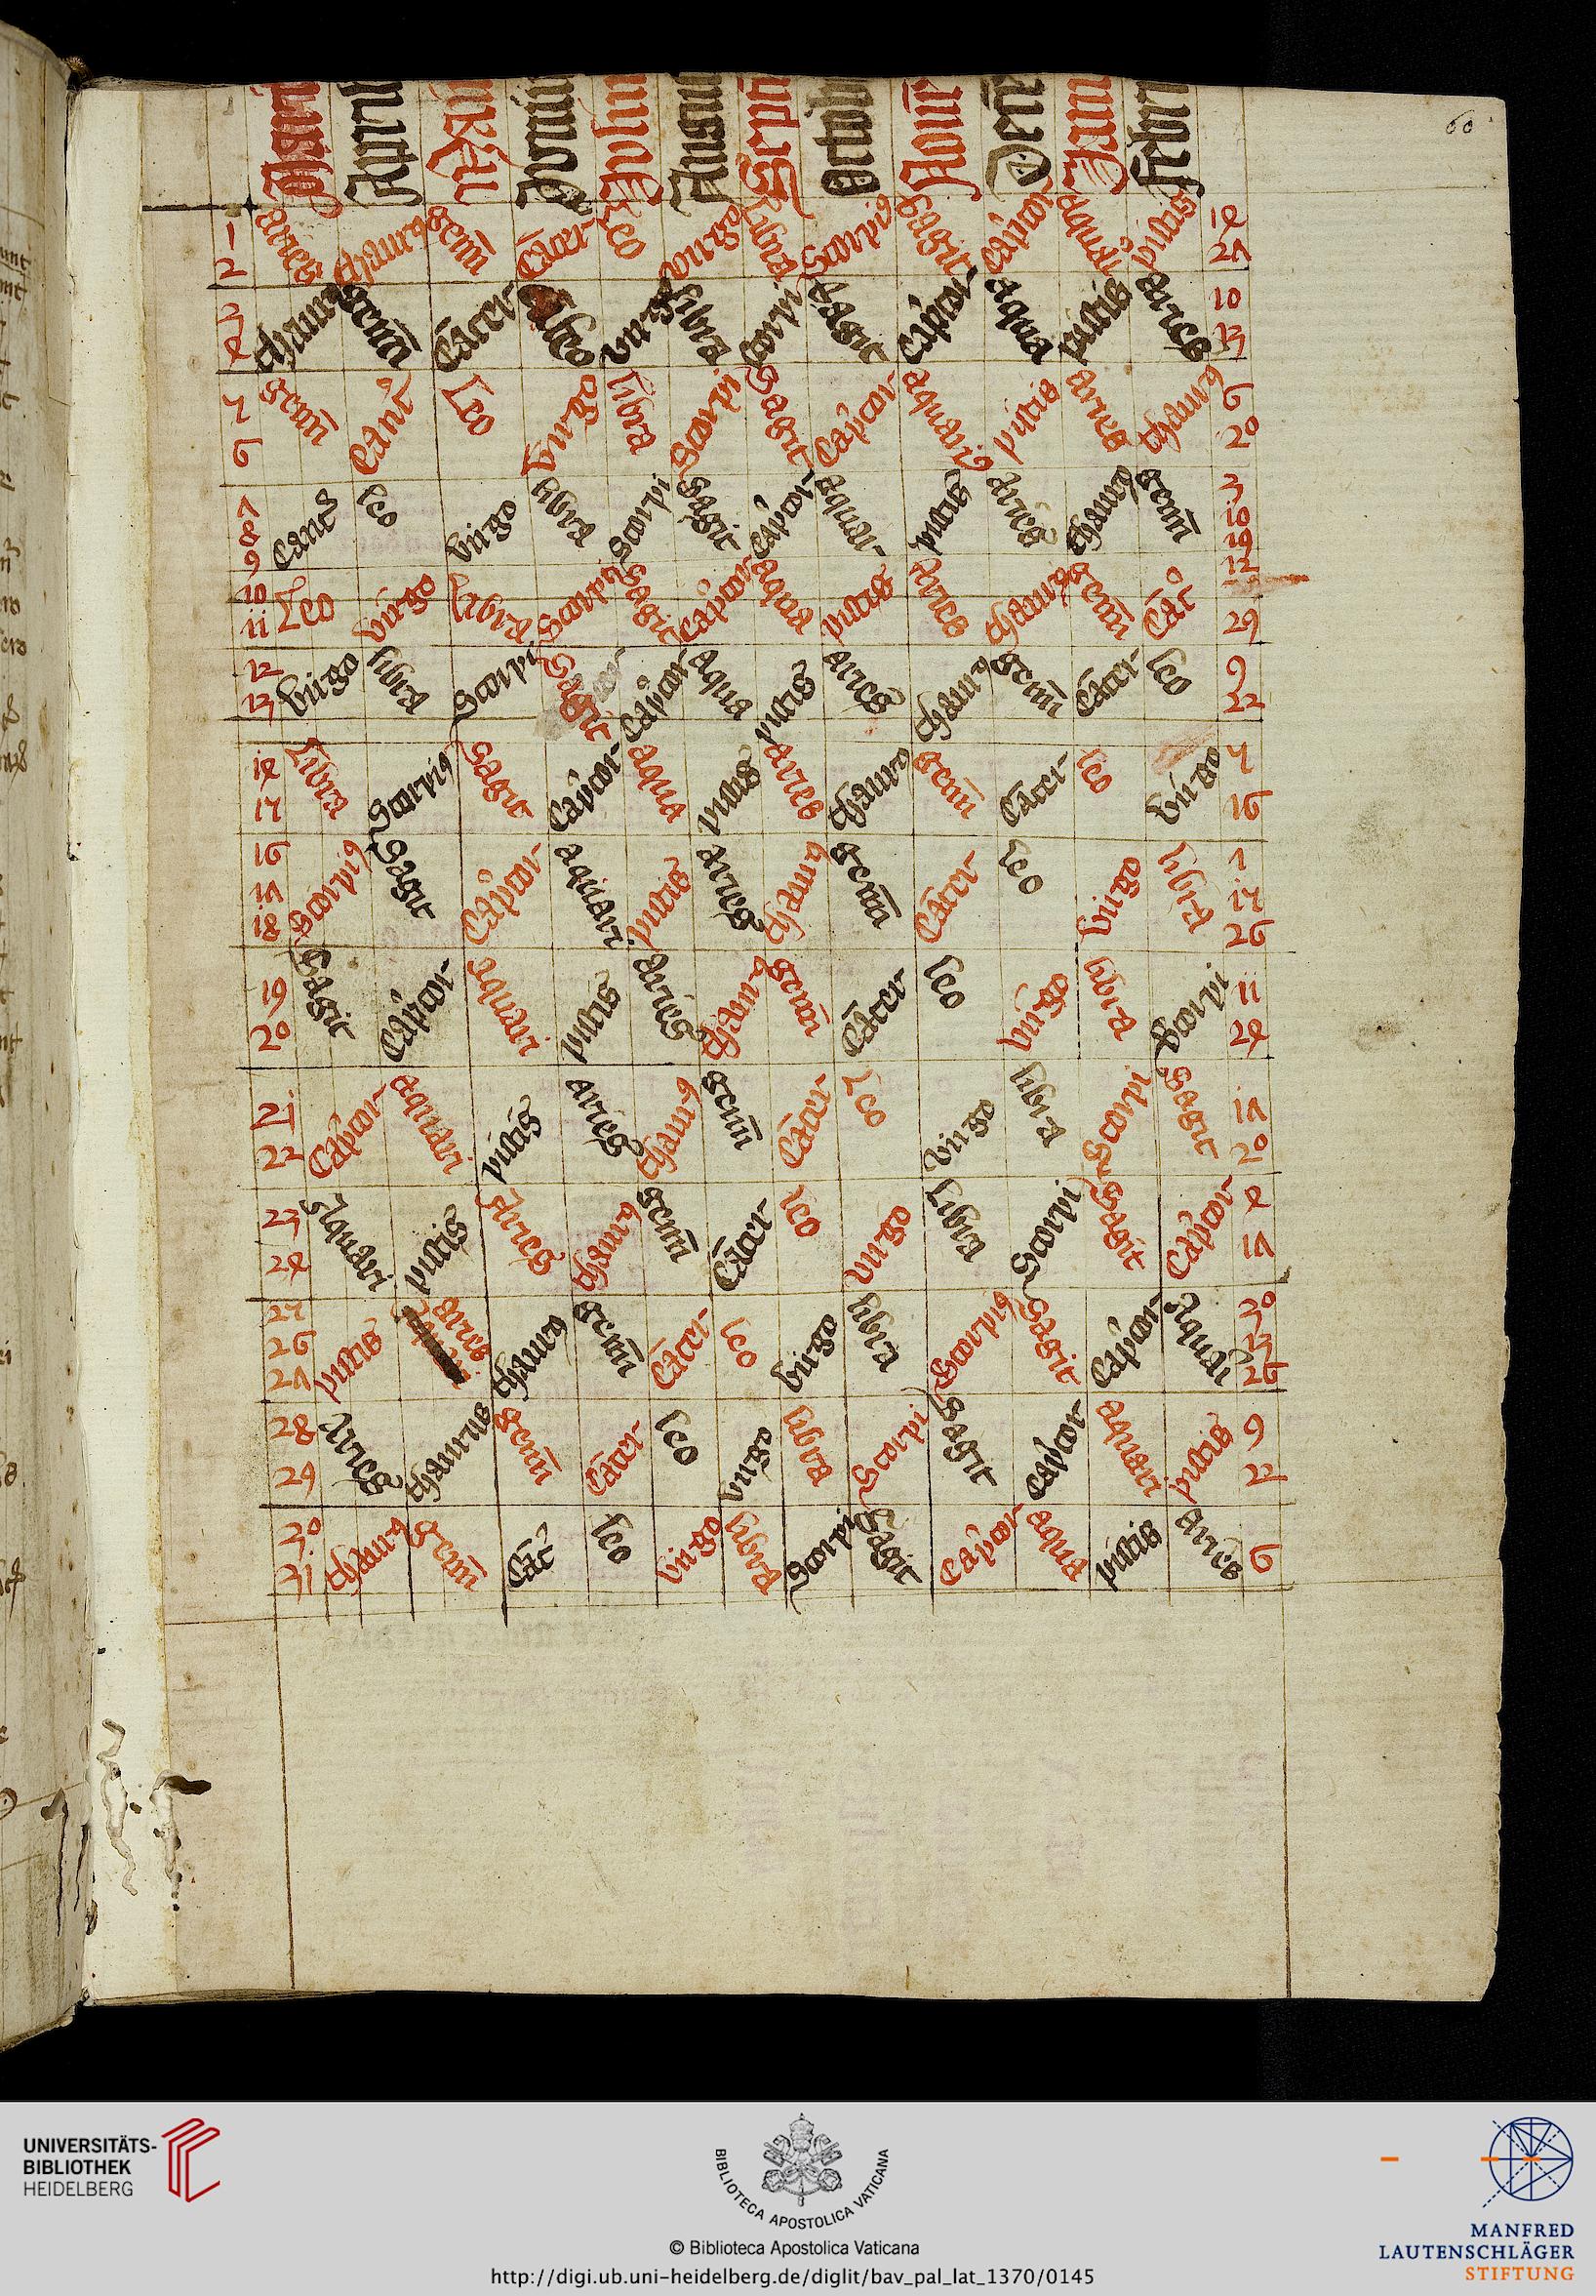 1 2 aries thaurꝰ gemi Cācer Leo virgo libra Scorpiꝰ Sagit Capicor aquari piscis 14 27
3 4 thaurꝰ gemi Cācer leo virgo libra scorpi Sagit Capicor aqua piscis aries 10 13
5 6 gemi Canc Leo virgo libra Scorpi Sagit Capicor aquariꝰ piscis aries thaurꝰ 6 20
7 8 9 Canc leo virgo libra Scorpi Sagit Capicor aquar piscis aries thaurꝰ gemi 3 10 19
10 11 Leo virgo libra Scorpi Sagit Capicor aqua piscis Aries thaurꝰ gemi Cāc 12 29
12 13 virgo libra Scorpi Sagit Capicor aqua piscis aries thaurꝰ gemi Cācer leo 9 22
14 15 Libra Scorpiꝰ Sagit Capicor aqua piscis aries thauro gemi Cācer leo virgo 5 16
16 17 18 Scorpiꝰ Sagit Capicor aquari piscis aries thaurꝰ gemi Cācer leo virgo libra 1 15 26
19 20 Sagit Capicor aquari piscis aries thaurꝰ gemi Cācer leo virgo libra Scorpi 11 24
21 22 Capicor aquari piscis aries thaurꝰ gemi Cācer Leo virgo libra Scorpi Sagit 17 20
23 24 Aquari piscis Aries thaurꝰ gemi Cācer leo virgo libra Scorpi Sagit Capicor 4 17
25 26 27 piscis aries thauro gemi Cācer leo virgo libra Scorpiꝰ Sagit Capicor Aquari 30 13 26
28 29 Aries thaurus gemi Cācer leo virgo libra Scorpi Sagit Capicor aquari piscis 9 22
30 31 thaurꝰ gemi Cāc leo virgo libra Scorpi Sagit Capicor aqua piscis aries 6
60
UNIVERSITÄTS-
BIBLIOTHEK
HEIDELBERG
BIBLIOTECA APOSTOLICA VATICANA
© Biblioteca Apostolica Vaticana
http://digi.ub.uni-heidelberg.de/diglit/bav_pal_lat_1370/0145
MANFRED
LAUTENSCHLÄGER
STIFTUNG